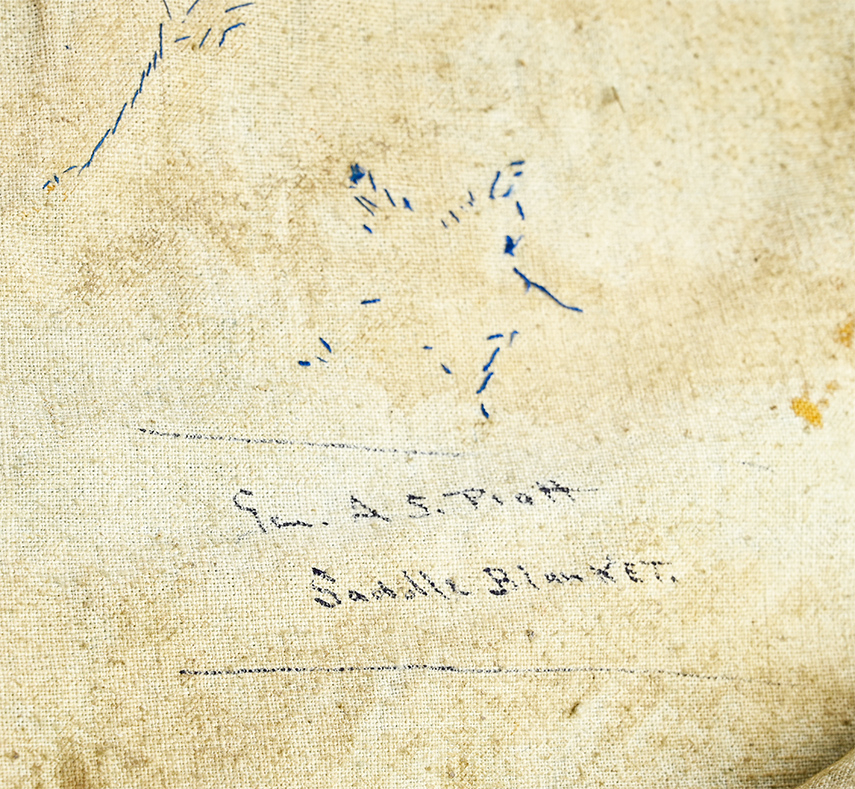 Gen. A S. Piatt
Saddle BlanKET.